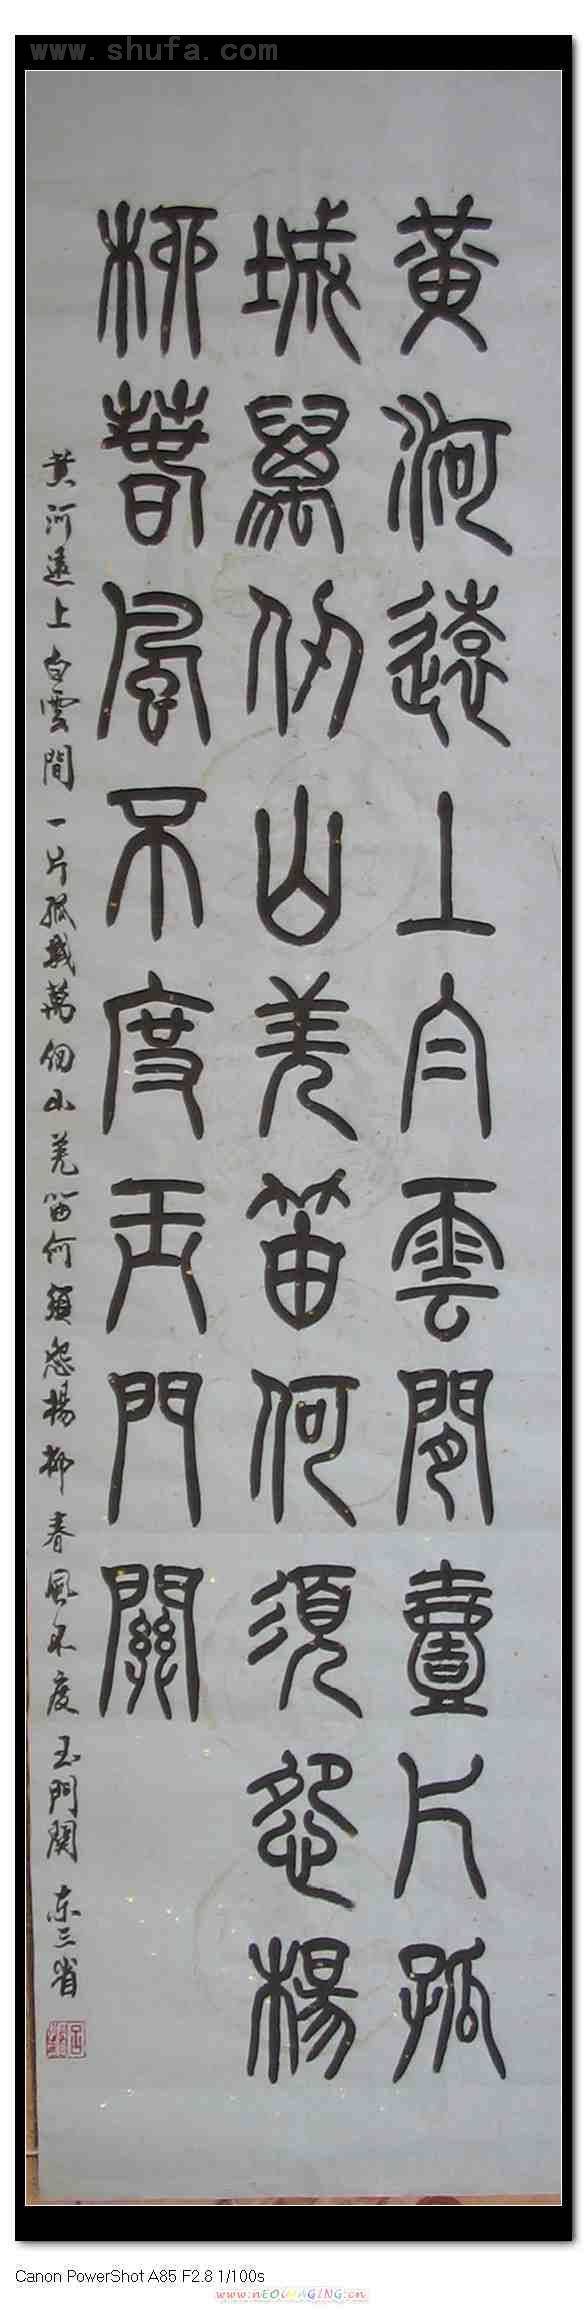 www.shufa.com
黄河遠上白雲間壹片孤
城萬仞山羌笛何須怨楊
柳春風不度玉門關
黄河遠上白雲間一片孤城萬仞山羌笛何須怨楊柳春風不度玉門関 东三省
Canon PowerShot A85 F2.8 1/100s
www.nEOiMAGiNG.cn